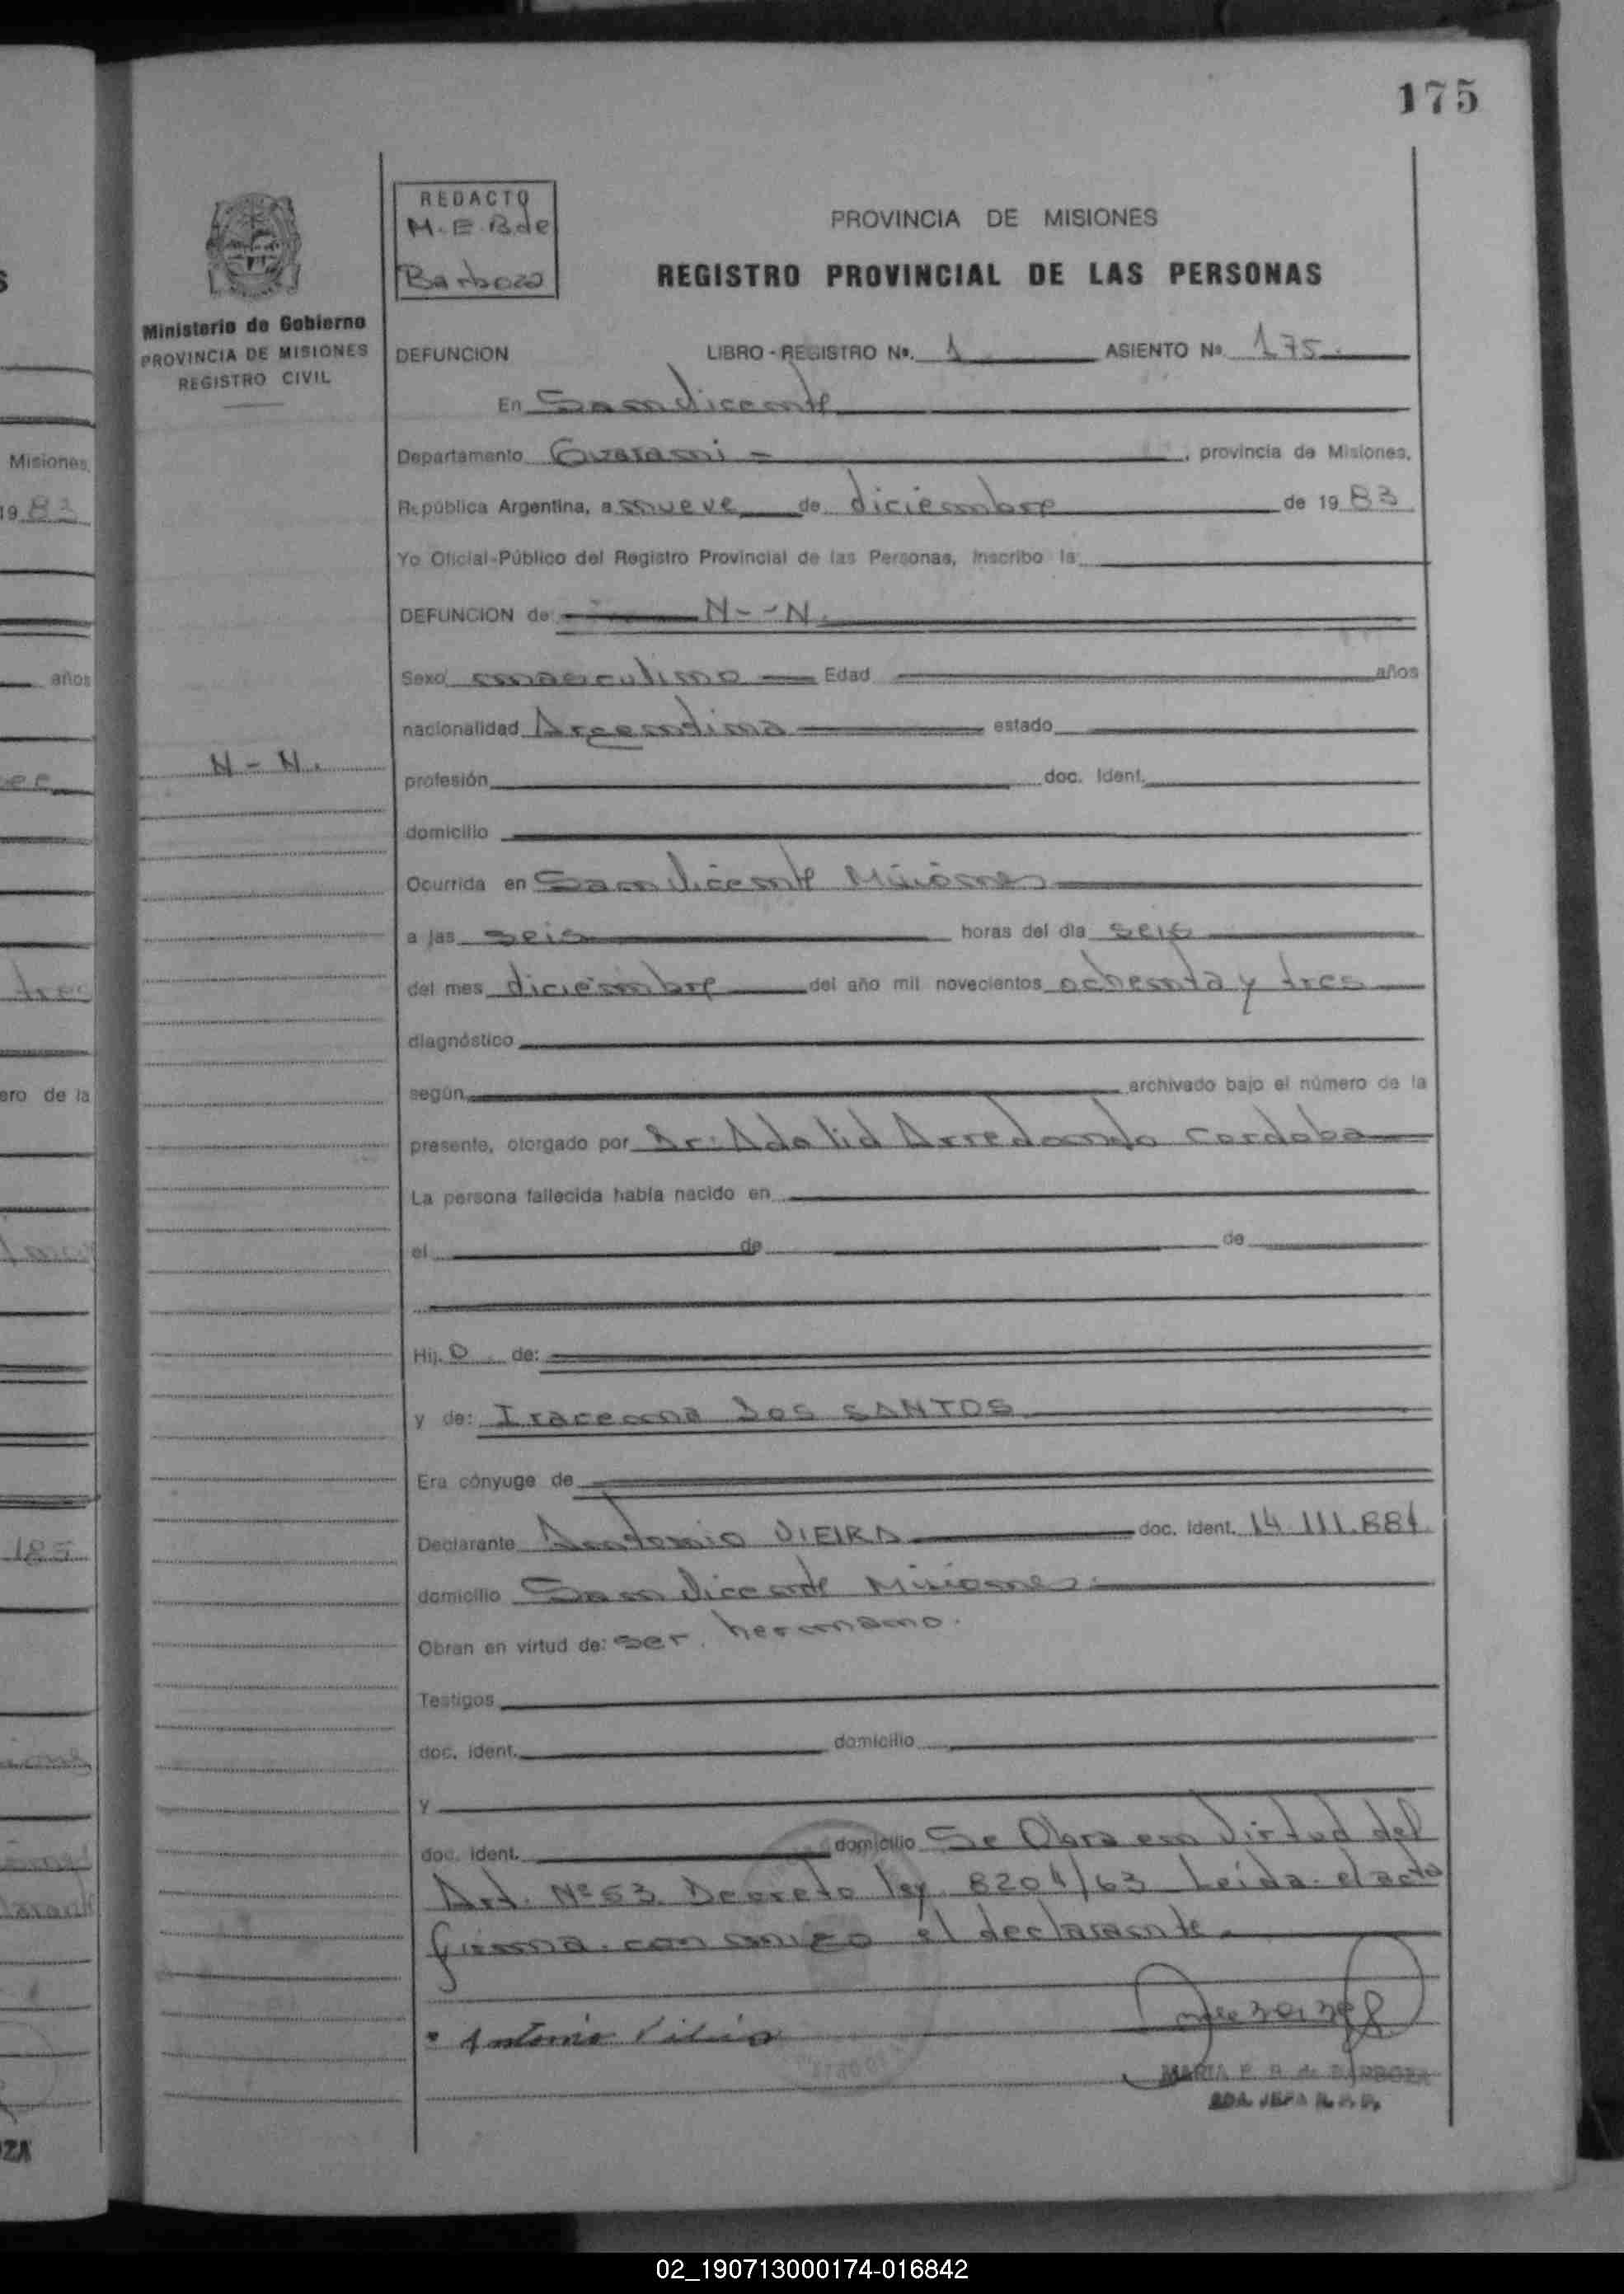 175
REDACTO
M. E. B. de
Barboza
PROVINCIA DE MISIONES
REGISTRO PROVINCIAL DE LAS PERSONAS
Ministerio de Gobierno
PROVINCIA DE MISIONES
REGISTRO CIVIL
DEFUNCION LIBRO - REGISTRO Nº. 1 ASIENTO Nº 175.
En San Vicente
Departamento Guarani - , provincia de Misiones,
República Argentina, a nueve de diciembre de 19 83
Yo Oficial-Público del Registro Provincial de las Personas, inscribo la
DEFUNCION de N - - N.
Sexo masculino Edad años
nacionalidad Argentina estado
N - N.
profesión doc. Ident.
domicilio
Ocurrida en San Vicente Misiones
a las seis horas del día seis
del mes diciembre del año mil novecientos ochenta y tres
diagnóstico
según archivado bajo el número de la
presente, otorgado por Dr: Adalid Arredondo Cordoba
La persona fallecida había nacido en
el de de
Hij. o de:
y de: Iracema DOS SANTOS
Era cónyuge de
Declarante Antonio VIEIRA doc. Ident. 14.111.881
domicilio San Vicente Misiones.
Obran en virtud de: ser. hermano.
Testigos
doc. ident. domicilio
y
doc. ident. domicilio Se Obra en Virtud del
Art. Nº 53 Decreto ley 8204/63 Leida el acta
firma conmigo el declarante.
Antonio Vieira
MARIA E. B. de BARBOZA
Misiones,
19 83
años
tres
ero de la
185
OZA
02_190713000174-016842